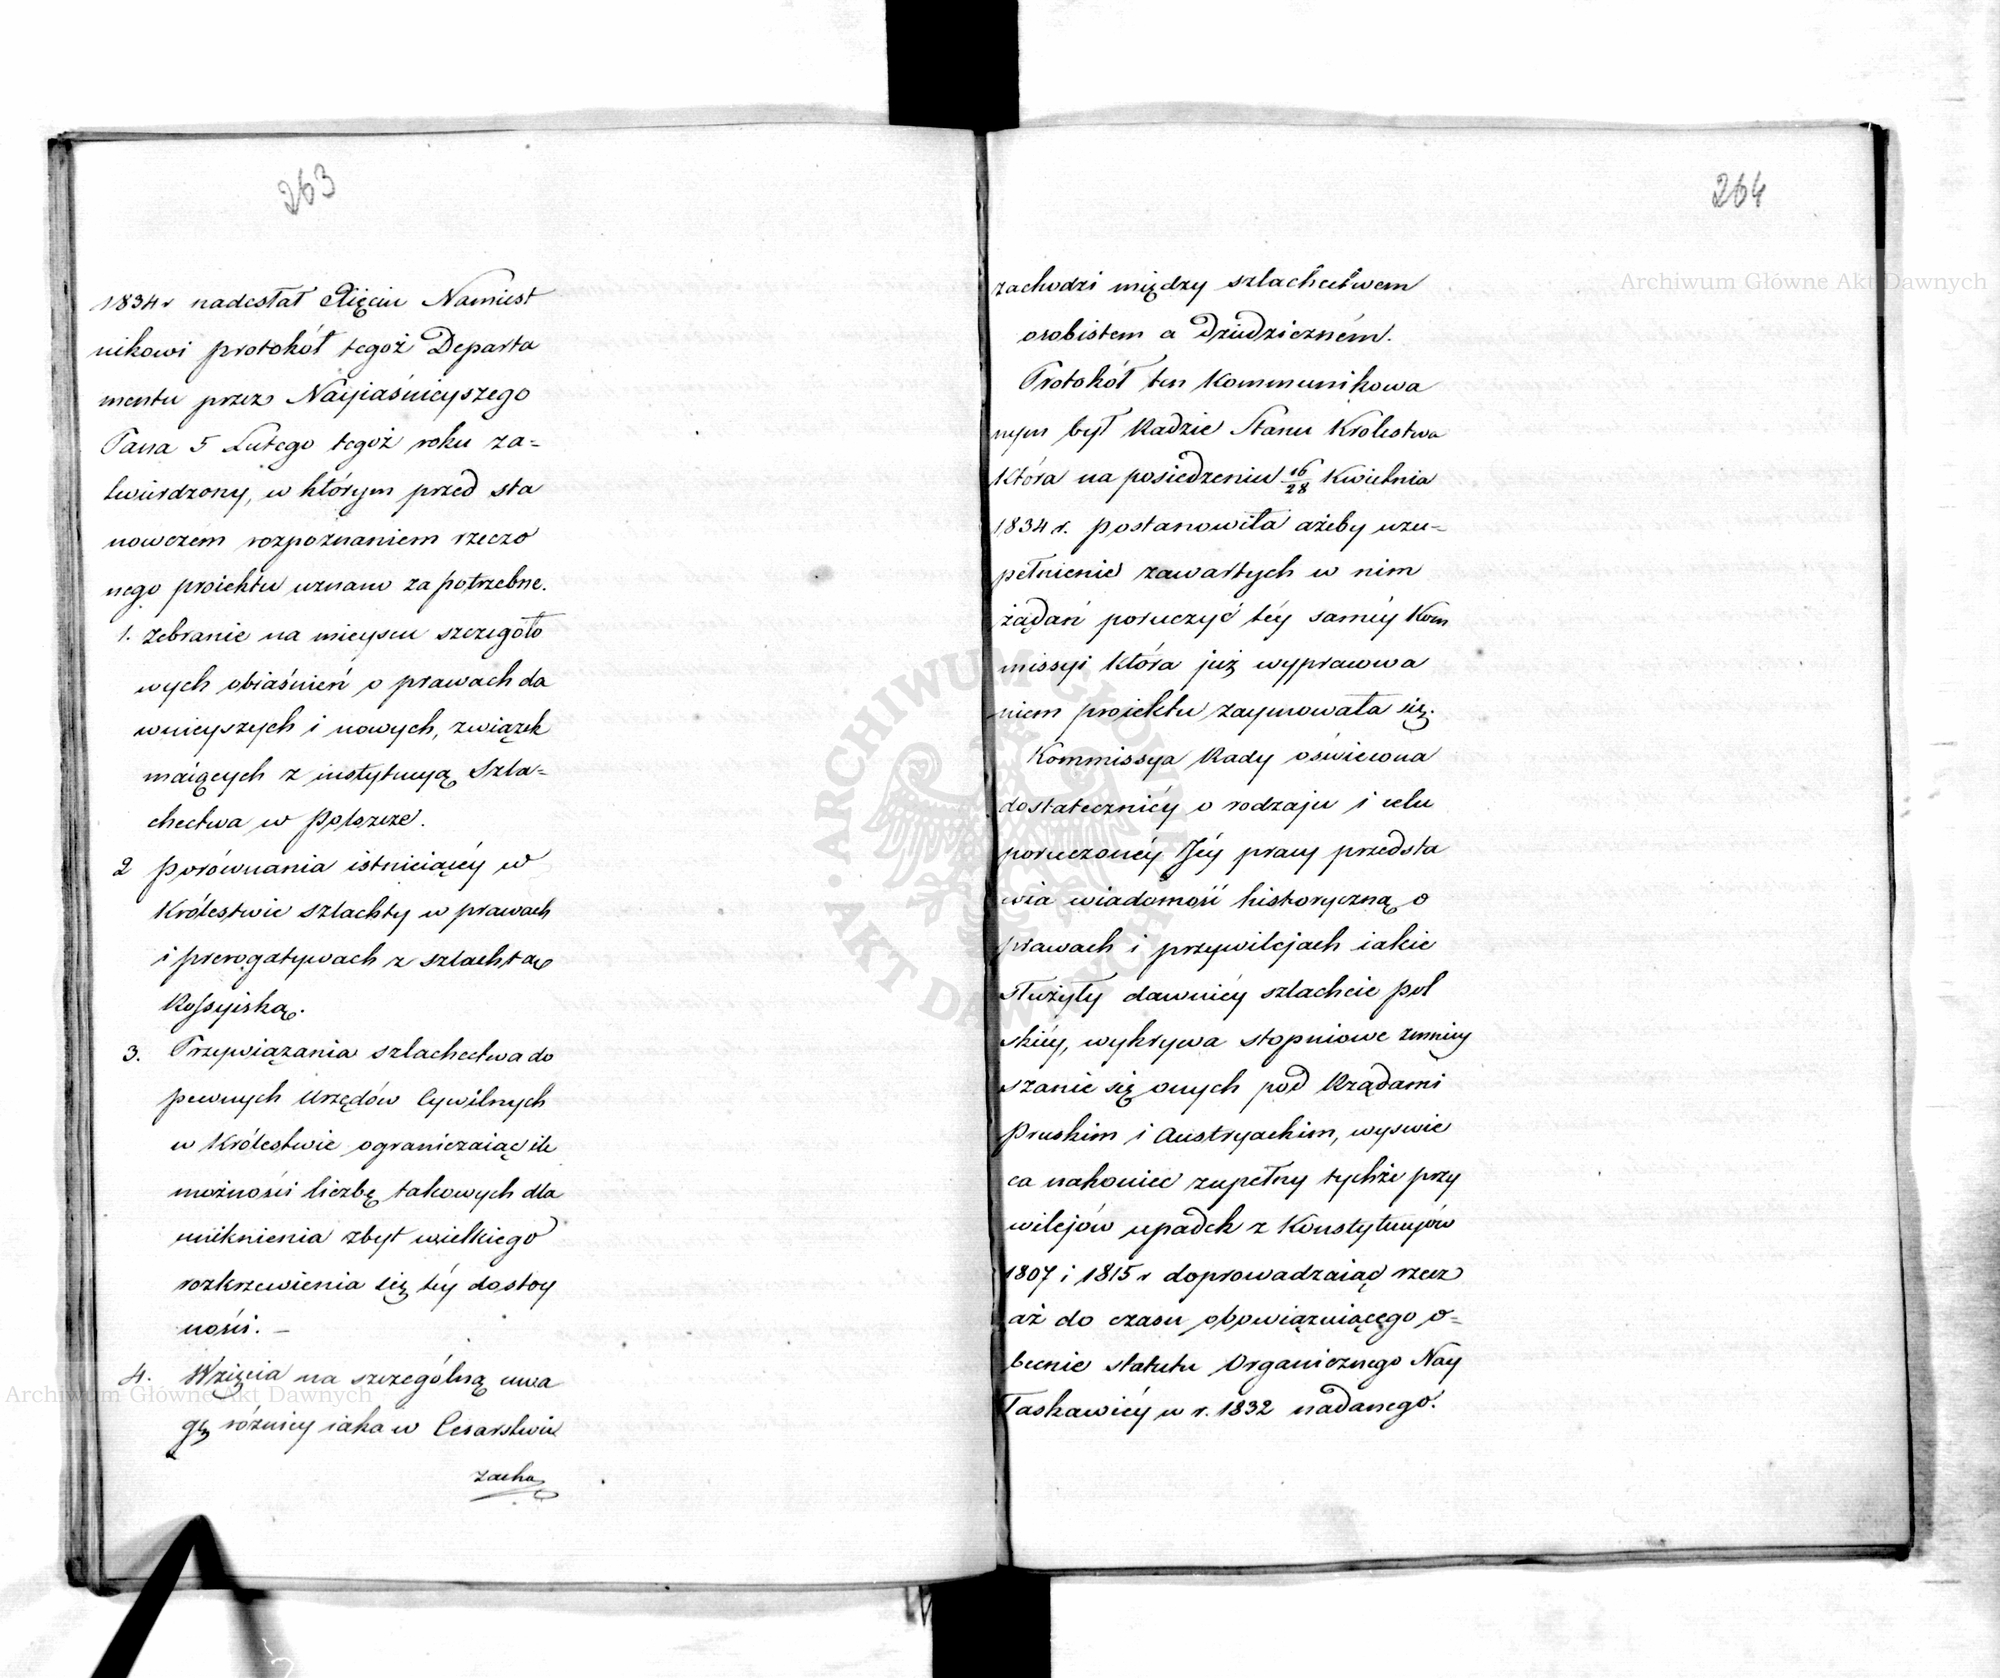 263
1834 r nadesłał Xięciu Namiest
nikowi protokół tegoż Departa
mentu przez Nayiaśnieyszego
Pana 5 Lutego tegoż roku za=
twierdzony, w którym przed sta
nowczém rozpoznaniem rzeczo
nego proiektu uznano za potrzebne.
1. Zebranie na mieyscu szczegóło
wych obiaśnień o prawach da
wnieyszych i nowych, związek
maiących z instytucyą Szla=
chectwa w Polszcze.
2 Porównania istnieiącéy w
Królestwie szlachty w prawach
i prerogatywach z szlachtą
Rossyiską.
3. Przywiązania szlachectwa do
pewnych Urzędów Cywilnych
w Królestwie ograniczaiąc ile
możności liczbę takowych dla
uniknienia zbyt wielkiego
rozkrzewienia się téy dostoy
ności. –
4. Wzięcia na szczególną uwa
gę różnicy iaka w Cesarstwie
zacho
264
zachodzi między szlachectwem
osobistem a Dziedziczném.
Protokół ten Kommunikowa
nym był Radzie Stanu Królestwa
która na posiedzeniu 16/28 Kwietnia
1834 r. postanowiła ażeby uzu=
pełnienie zawartych w nim
żądań poruczyć téy saméy Kom
missyi która już wyprawowa
niem proiektu zaymowała się.
Kommissya Rady oświecona
dostatecznićy o rodzaju i celu
poruczonéy Jéy pracy przedsta
wia wiadomość historyczną o
prawach i przywilejach iakie
służyły dawniéy szlachcie pol
skiéy, wykrywa stopniowe zmniey
szanie się onych pod Rządami
Pruskim i Austryackim, wyświe
ca nakoniec zupełny tychże przy
wilejów upadek z Konstytucyów
1807 i 1815 r doprowadzaiąc rzecz
aż do czasu obowiązuiącego o=
becnie statutu Organicznego Nay
Łaskawiéy w r. 1832 nadanego.
Archiwum Główne Akt Dawnych
Archiwum Główne Akt Dawnych
ARCHIWUM GŁÓWNE AKT DAWNYCH